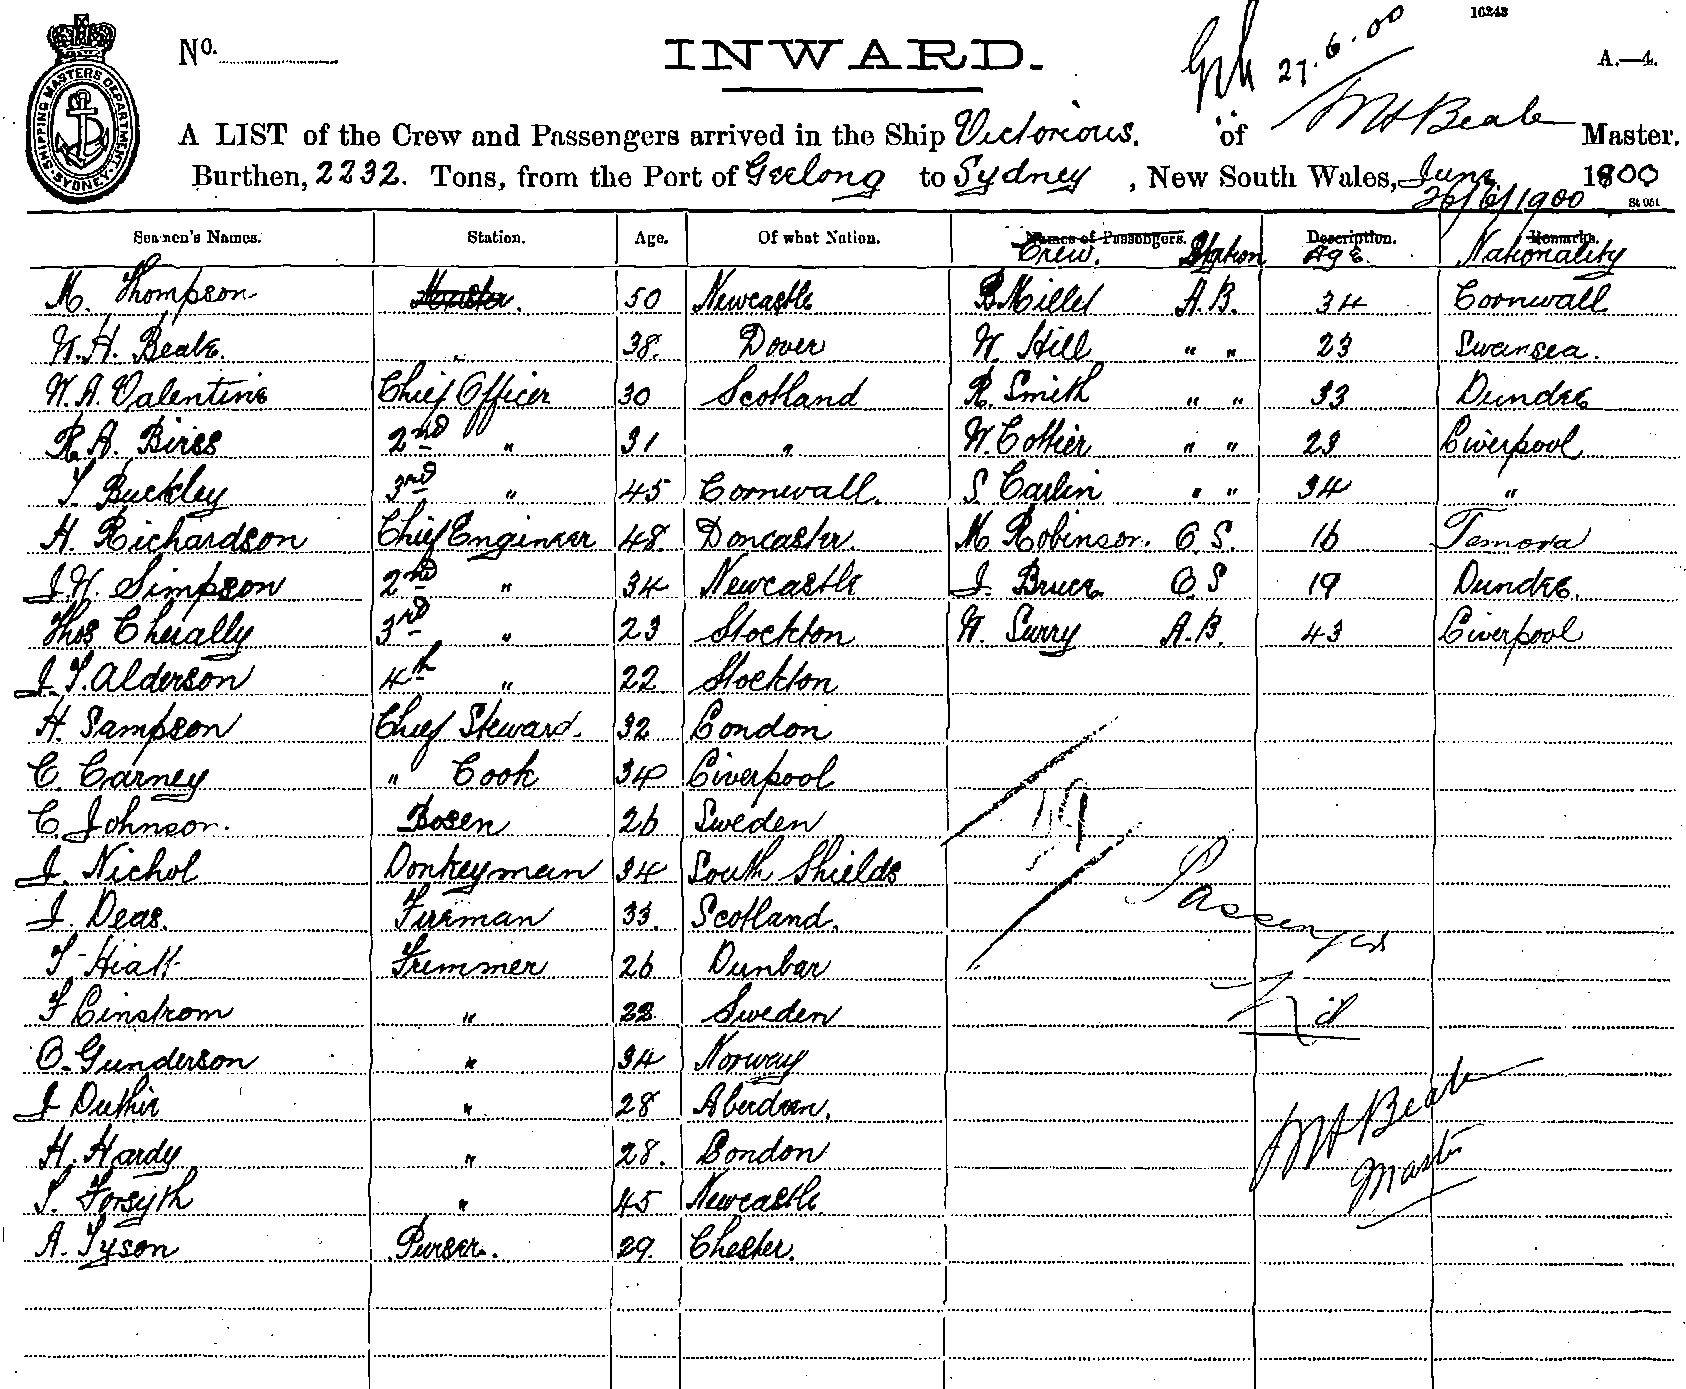 16243
No.
INWARD.
27.6.00
A.—4.
SHIPPING MASTERS DEPARTMENT SYDNEY
A LIST of the Crew and Passengers arrived in the Ship Victorious. of WH Beale Master.
Burthen, 2232. Tons, from the Port of Geelong to Sydney, New South Wales, June 1900
26/6/1900
Seamen's Names. Station. Age. Of what Nation. Names of Passengers. Description. Remarks.
Crew. Station Age. Nationality
M. Thompson Master. 50 Newcastle B Millet A.B. 34 Cornwall
W.H. Beale. „ 38. Dover W. Hill „ „ 23 Swansea.
W.A. Valentine Chief Officer 30 Scotland R. Smith „ „ 33 Dundee
R.A. Birss 2nd „ 31 „ W. Collier „ „ 23 Liverpool
T. Buckley 3rd „ 45 Cornwall. S. Carlin „ „ 34 „
H. Richardson Chief Engineer 48. Doncaster. M Robinson. O.S. 16 Temora
J.W. Simpson 2nd „ 34 Newcastle J. Bruce O S 19 Dundee.
Thos Cherally 3rd „ 23 Stockton W. Surry A.B. 43 Liverpool
J.T. Alderson 4th „ 22 Stockton
H. Sampson Chief Steward. 32 London
C. Carney „ Cook 34 Liverpool
C. Johnson. Bosen 26 Sweden
J. Nichol Donkeyman 34 South Shields
J. Deas. Fireman 33. Scotland.
T. Hiatt Trimmer 26 Dunbar
F Linstrom „ 22 Sweden
O. Gunderson „ 34 Norway
J Duthie „ 28 Aberdeen.
H. Hardy „ 28. London
S. Forsyth „ 45 Newcastle
A. Tyson Purser. 29. Chester.
29
Passengers
Nil
WH Beale
Master